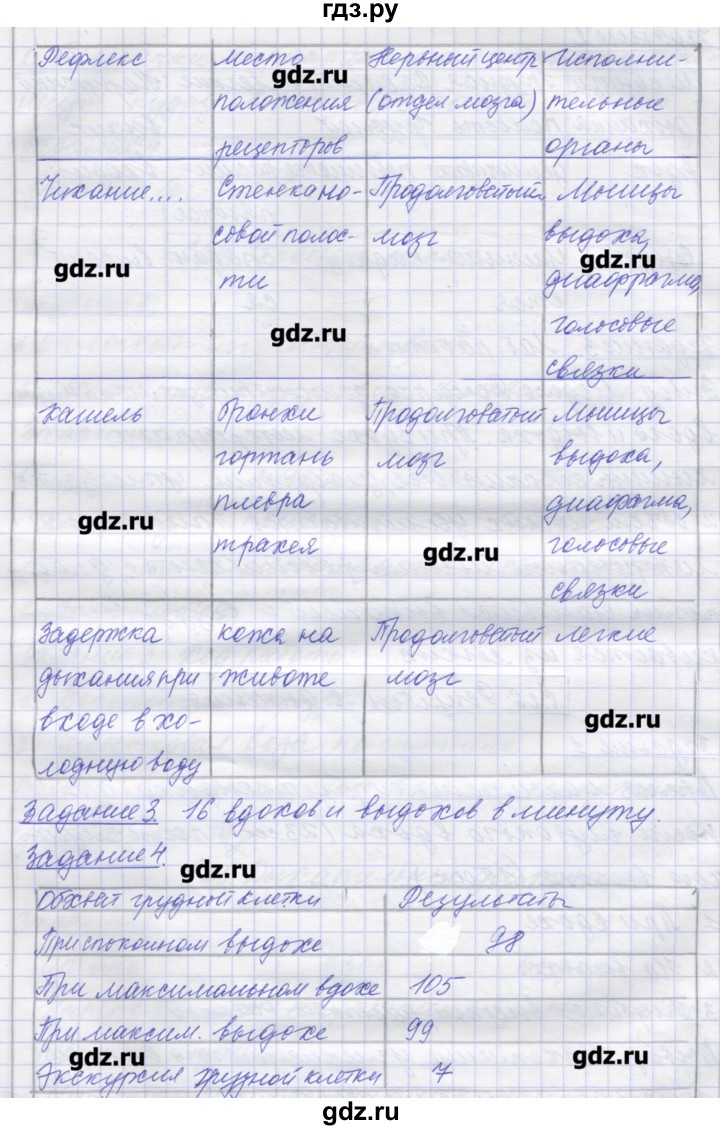 гдз.ру
Рефлекс Место положения рецепторов Нервный центр (отдел мозга) Исполнительные органы
Чихание.... Стенка носовой полости Продолговатый мозг Мышцы выдоха, диафрагма, голосовые связки
Кашель Бронхи гортань плевра трахея Продолговатый мозг Мышцы выдоха, диафрагма, голосовые связки
Задержка дыхания при входе в холодную воду кожа на животе Продолговатый мозг легкие
Задание 3. 16 вдохов и выдохов в минуту.
Задание 4.
Обхват грудной клетки Результаты
При спокойном выдохе 98
При максимальном вдохе 105
При максим. выдохе 99
Экскурсия грудной клетки 7
gdz.ru
gdz.ru
gdz.ru
gdz.ru
gdz.ru
gdz.ru
gdz.ru
gdz.ru
gdz.ru
gdz.ru
gdz.ru